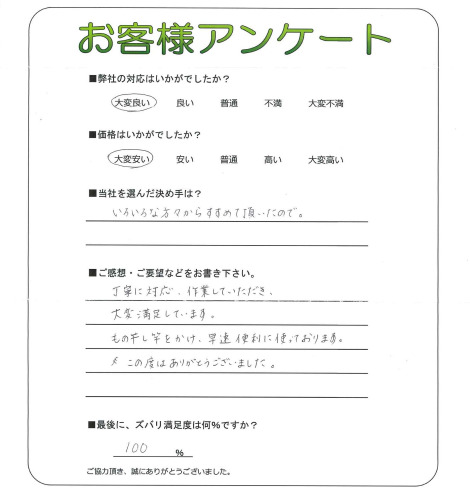 お客様アンケート
■弊社の対応はいかがでしたか？
大変良い 良い 普通 不満 大変不満
■価格はいかがでしたか？
大変安い 安い 普通 高い 大変高い
■当社を選んだ決め手は？
いろいろな方々からすすめて頂いたので。
■ご感想・ご要望などをお書き下さい。
丁寧に対応、作業していただき、
大変満足しています。
もの干し竿をかけ、早速便利に使っております。
この度はありがとうございました。
■最後に、ズバリ満足度は何％ですか？
100 ％
ご協力頂き、誠にありがとうございました。